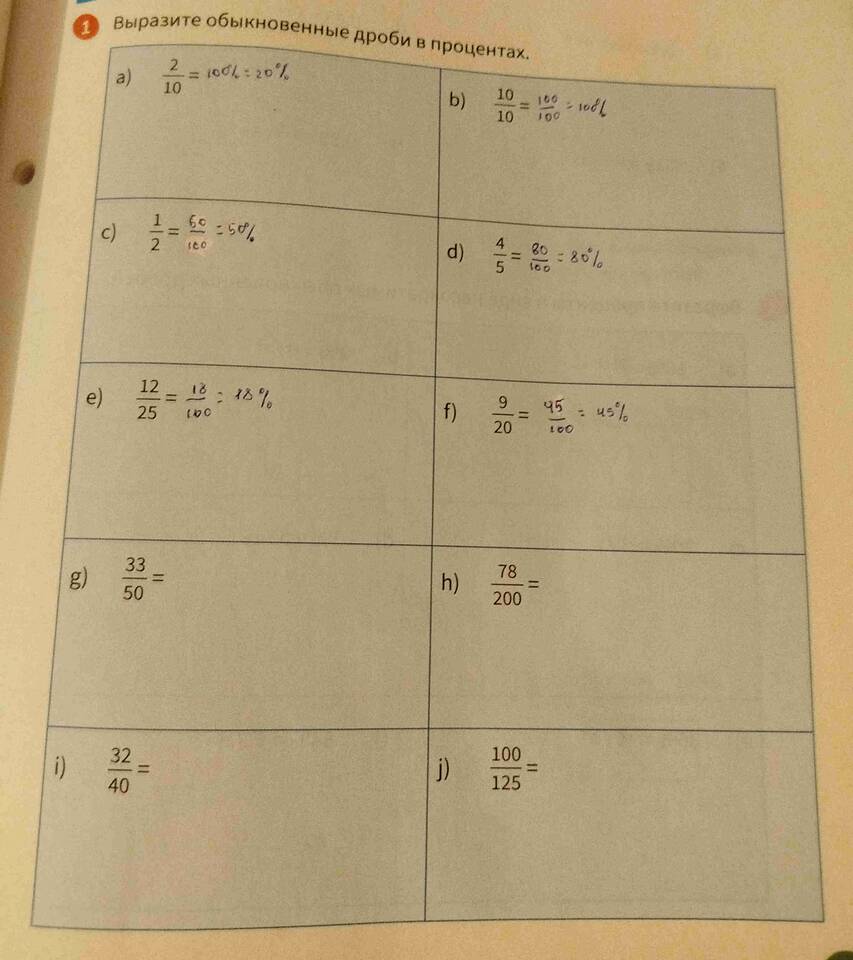 1 Выразите обыкновенные дроби в процентах.
a) 2/10 = 100% = 20%
b) 10/10 = 100/100 = 100%
c) 1/2 = 50/100 = 50%
d) 4/5 = 80/100 = 80%
e) 12/25 = 18/100 = 18%
f) 9/20 = 45/100 = 45%
g) 33/50 =
h) 78/200 =
i) 32/40 =
j) 100/125 =